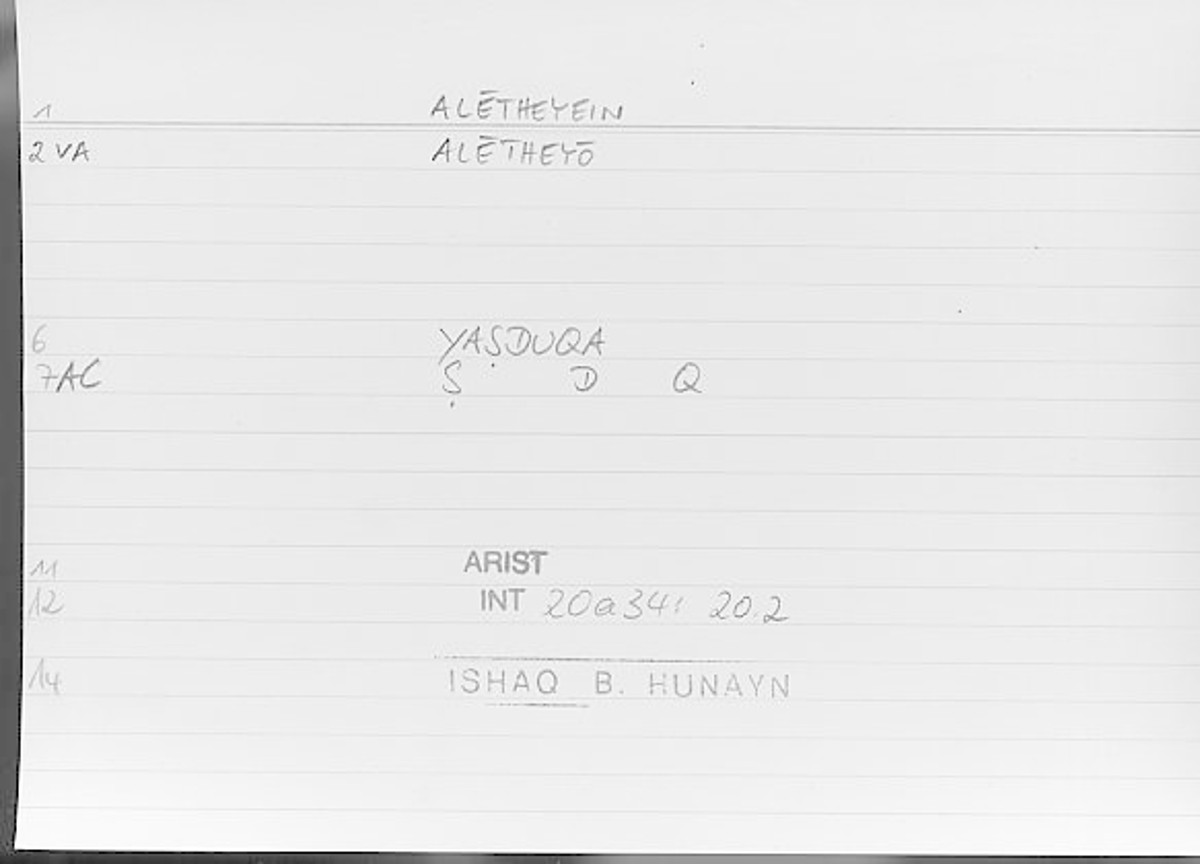 1 ALĒTHEYEIN
2 VA ALĒTHEYŌ
6 YAṢDUQA
7AC Ṣ D Q
11 ARIST
12 INT 20a34: 20.2
14 ISHAQ B. HUNAYN